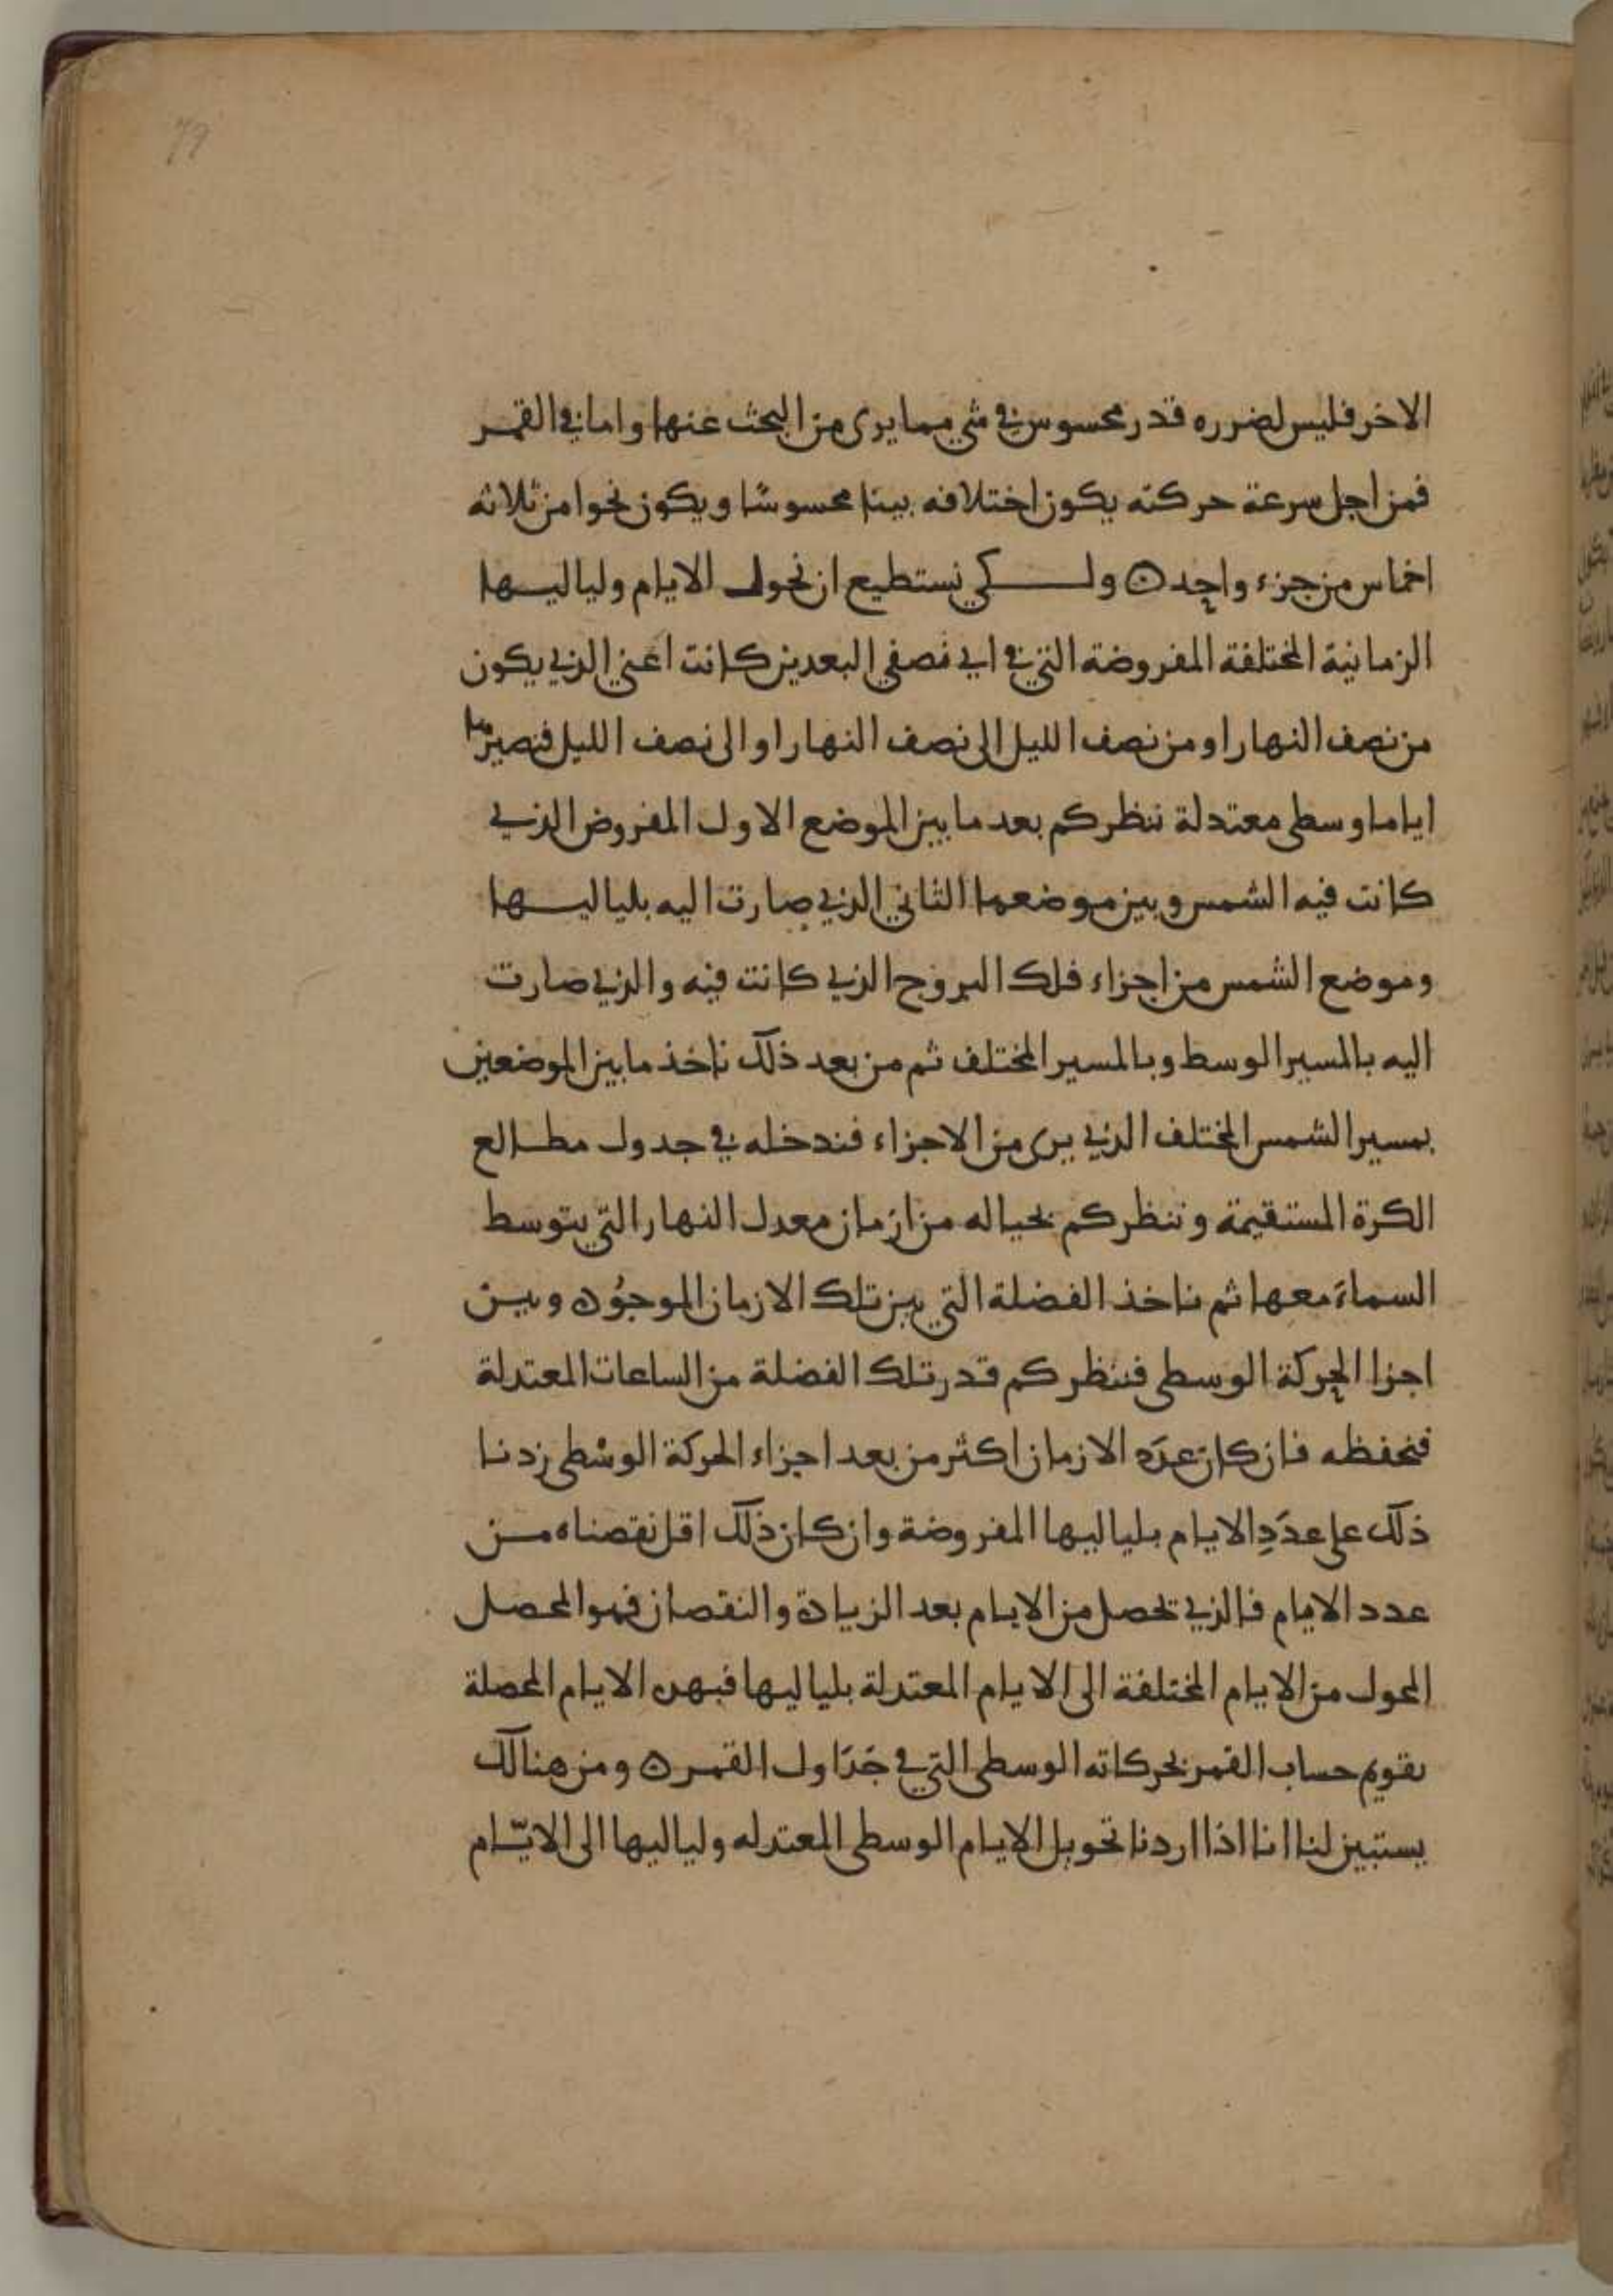 79
الاخر فليس لضرره قدر محسوس في شي مما يرى من البحث عنها واما في القمر
فمن اجل سرعة حركته يكون اختلافه بينا محسوسًا ويكون نحوا من ثلاثه
اخماس من جزء واحد ه ولكي نستطيع ان نحول الايام ولياليها
الزمانية المختلفة المفروضة التي في اي نصفي البعدين كانت اعني الذي يكون
من نصف النهار او من نصف الليل الى نصف النهار او الى نصف الليل فنصيرها
اياما وسطى معتدلة ننظر كم بعد ما بين الموضع الاول المفروض الذي
كانت فيه الشمس وبين موضعها الثاني الذي صارت اليه بلياليها
وموضع الشمس من اجزاء فلك البروج الذي كانت فيه والذي صارت
اليه بالمسير الوسط وبالمسير المختلف ثم من بعد ذلك ناخذ ما بين الموضعين
بمسير الشمس المختلف الذي يرى من الاجزاء فندخله في جدول مطالع
الكرة المستقيمة وننظر كم بحياله من ازمان معدل النهار التي يتوسط
السماءَ معها ثم ناخذ الفضلة التي بين تلك الازمان الموجوُده وبين
اجزا الحركة الوسطى فننظر كم قدر تلك الفضلة من الساعات المعتدلة
فنحفظه فان كان عدَد الازمان اكثر من بعد اجزاء الحركة الوسْطى زدنا
ذلك على عدَدِ الايام بلياليها المفروضة وان كان ذلك اقل نقصناه من
عدد الايام فالذي تحصل من الايام بعد الزيادة والنقصان فهو المحصل
المحول من الايام المختلفة الى الايام المعتدلة بلياليها فبهذه الايام المحصلة
نقوم حساب القمر بحركاته الوسطى التي في جَدَاول القمر ه ومن هنالك
يستبين لنا انا اذا اردنا تحويل الايام الوسطى المعتدله ولياليها الى الايّام